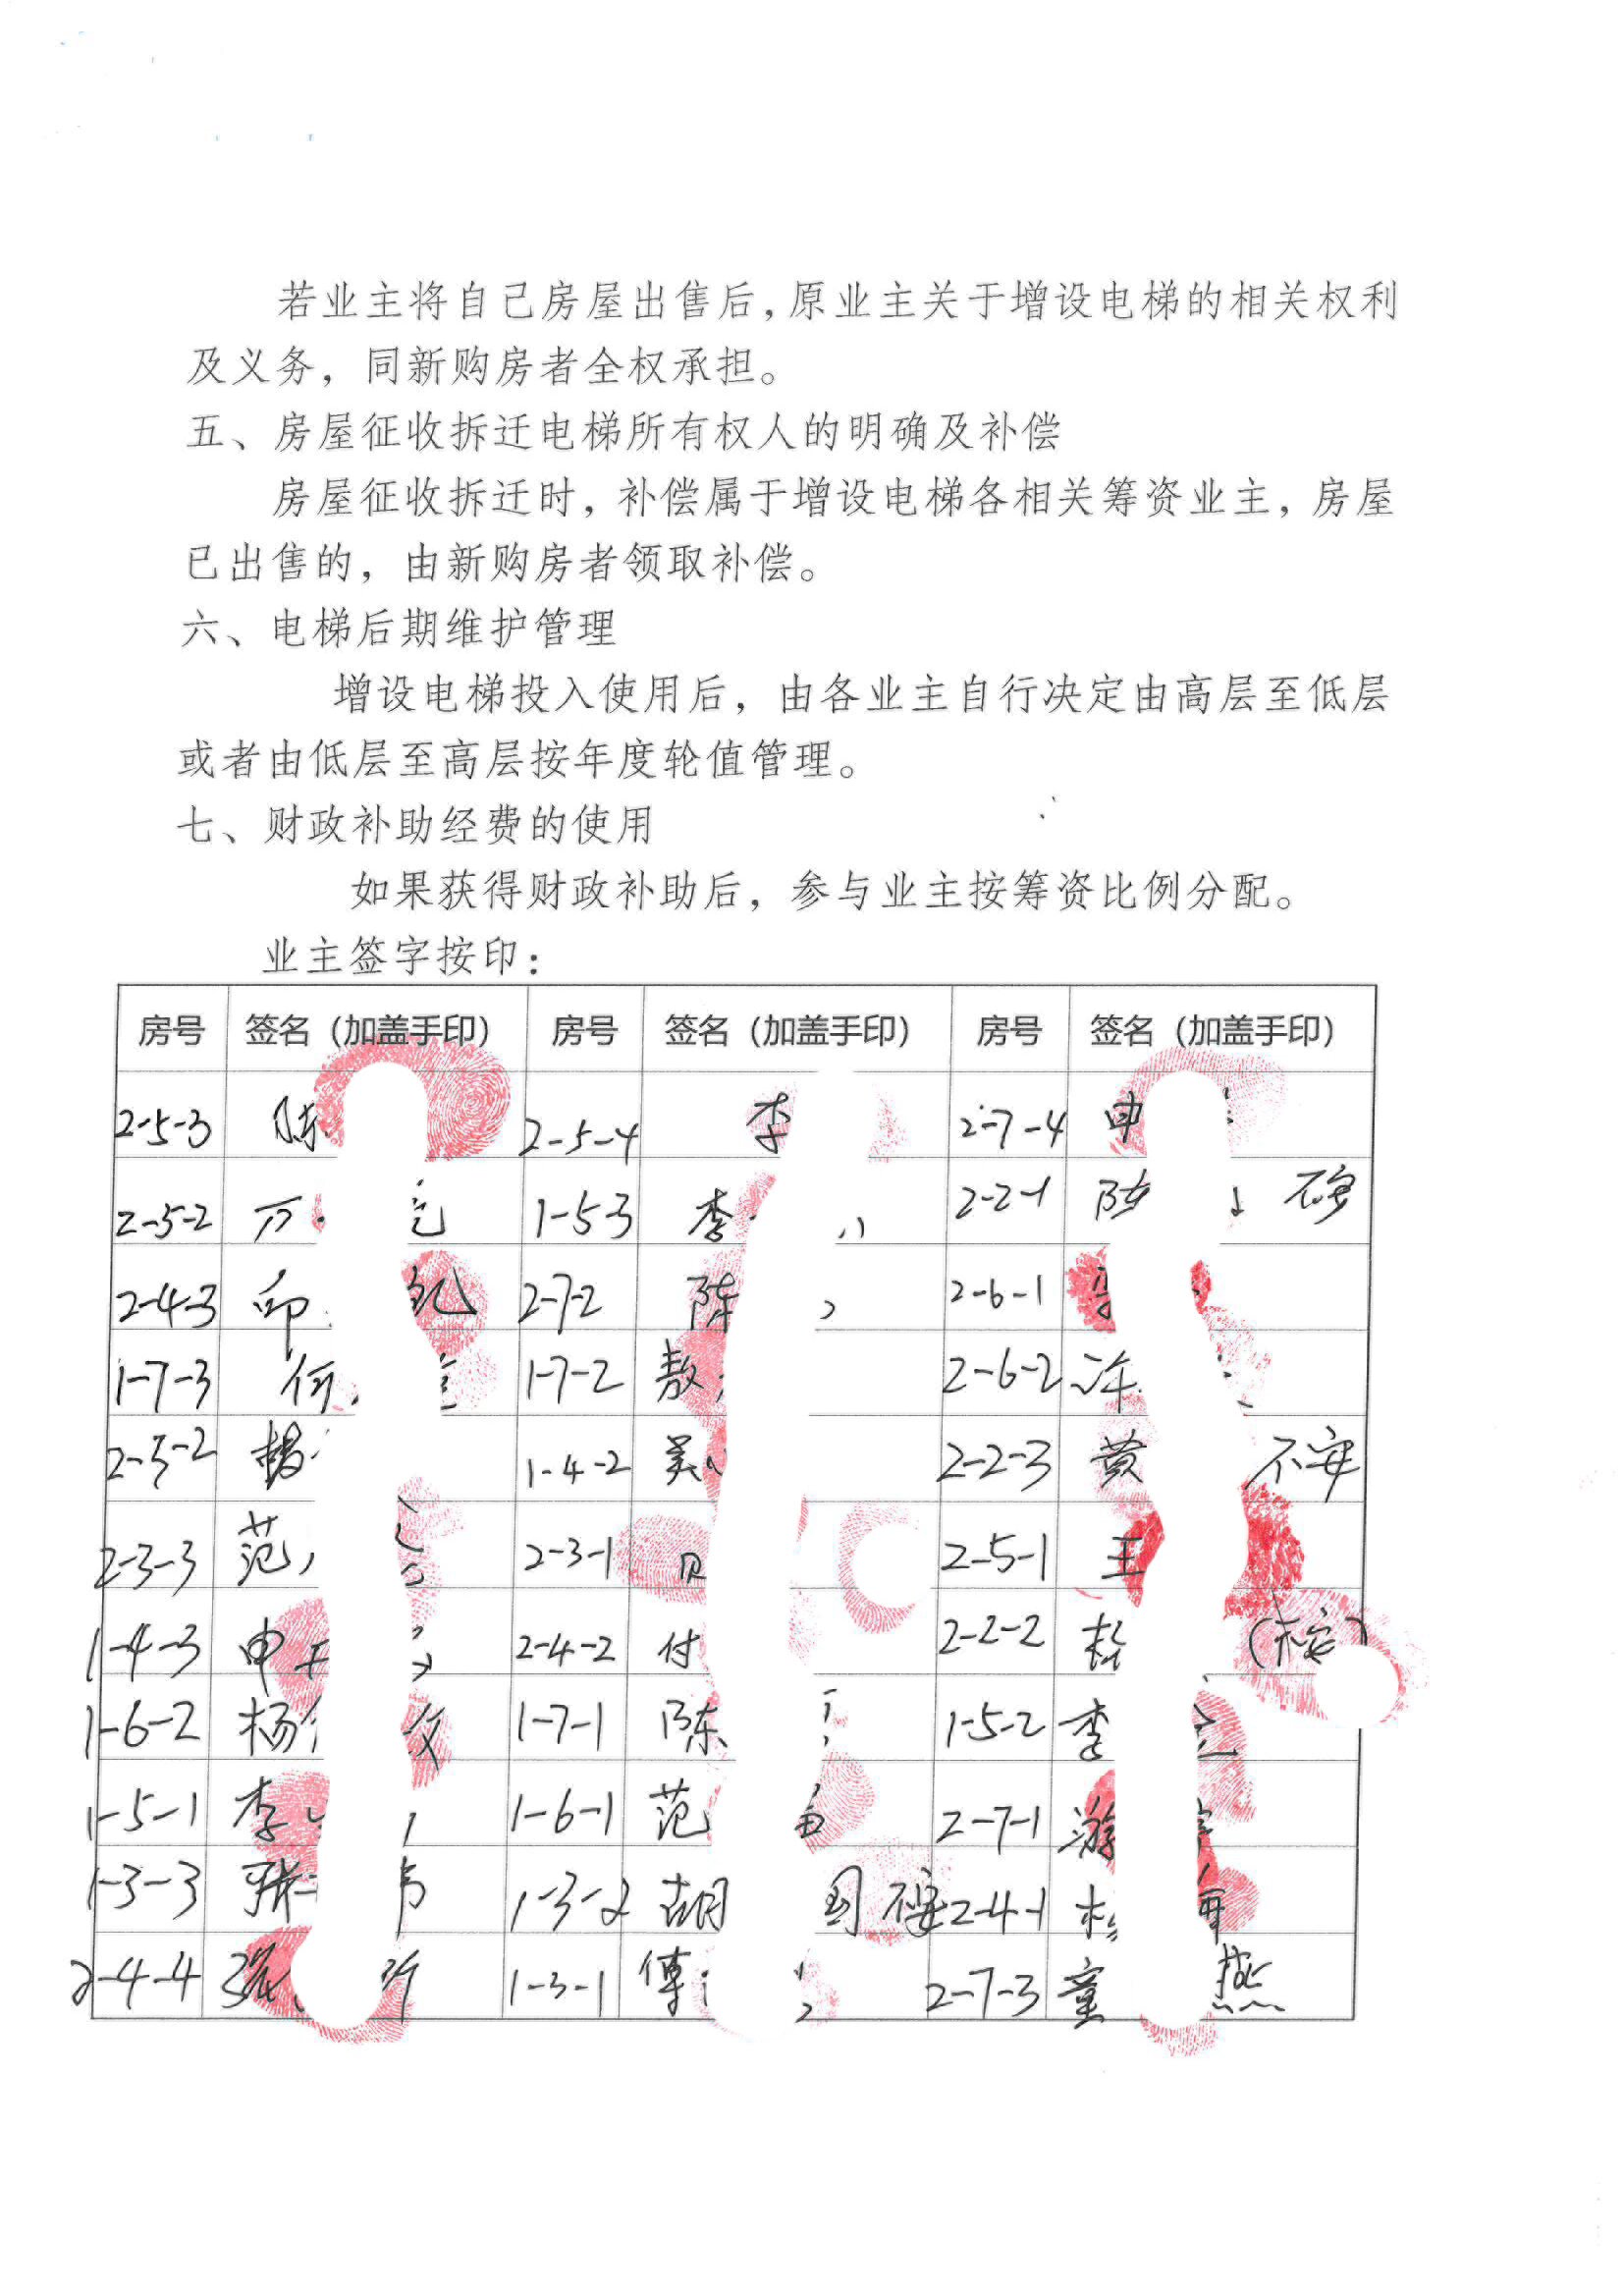 若业主将自己房屋出售后，原业主关于增设电梯的相关权利
及义务，同新购房者全权承担。
五、房屋征收拆迁电梯所有权人的明确及补偿
房屋征收拆迁时，补偿属于增设电梯各相关筹资业主，房屋
已出售的，由新购房者领取补偿。
六、电梯后期维护管理
增设电梯投入使用后，由各业主自行决定由高层至低层
或者由低层至高层按年度轮值管理。
七、财政补助经费的使用
如果获得财政补助后，参与业主按筹资比例分配。
业主签字按印：
房号 签名（加盖手印） 房号 签名（加盖手印） 房号 签名（加盖手印）
2-5-3 陈 2-5-4 李 2-7-4 申
2-5-2 1-5-3 李 2-2-1 陈 不安
2-4-3 印 2-7-2 陈 2-6-1
1-7-3 何 1-7-2 敖 2-6-2 许
杨 1-4-2 2-2-3 黄 不安
2-3-3 范 2-3-1 2-5-1 王
1-4-3 申 2-4-2 付 2-2-2 （不安）
1-6-2 杨 1-7-1 陈 1-5-2 李
1-5-1 李 1-6-1 范 2-7-1 游
1-3-3 1-3-2 胡 不安 2-4-1
2-4-4 张 1-3-1 傅 2-7-3 童 燕